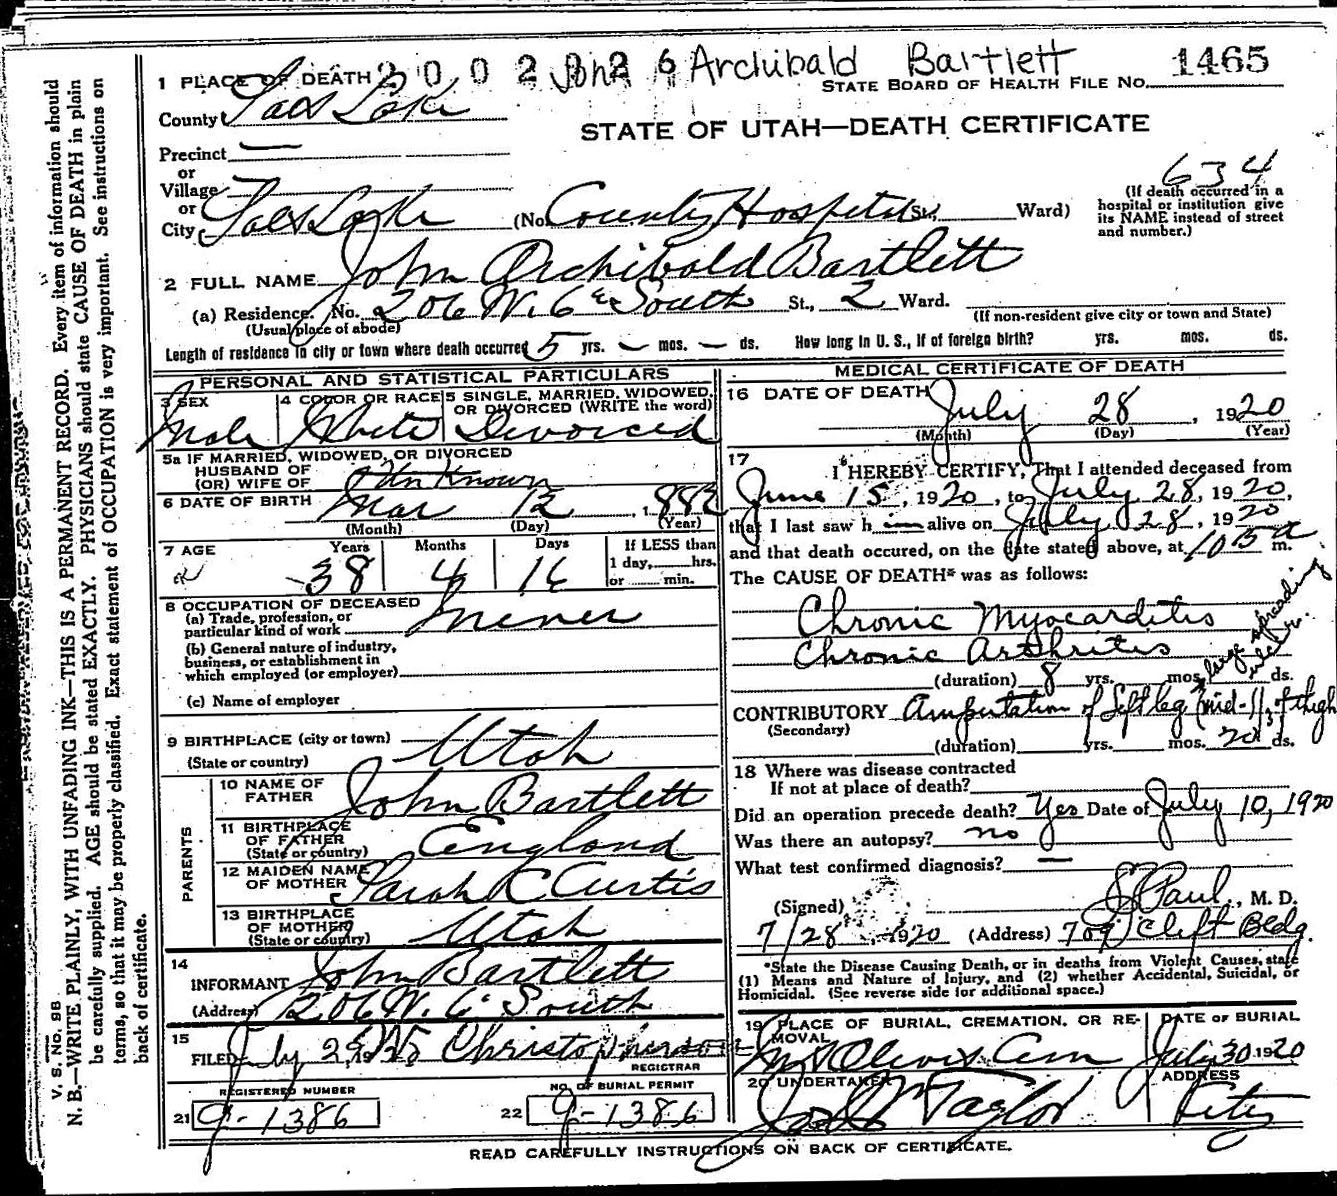 2 0 0 2 0 2 6 John Archibald Bartlett 1465
1 PLACE OF DEATH
STATE BOARD OF HEALTH FILE No.
County Salt Lake
STATE OF UTAH—DEATH CERTIFICATE
Precinct —
or
Village
or
City Salt Lake (No. County Hospital St., Ward)
634
(If death occurred in a
hospital or institution give
its NAME instead of street
and number.)
2 FULL NAME John Archibald Bartlett
(a) Residence. No. 206 W. 6 South St., 2 Ward.
(Usual place of abode)
(If non-resident give city or town and State)
Length of residence in city or town where death occurred 5 yrs. — mos. — ds. How long in U. S., if of foreign birth? yrs. mos. ds.
PERSONAL AND STATISTICAL PARTICULARS
3 SEX
Male
4 COLOR OR RACE
White
5 SINGLE, MARRIED, WIDOWED,
OR DIVORCED (WRITE the word)
Divorced
5a IF MARRIED, WIDOWED, OR DIVORCED
HUSBAND OF
(OR) WIFE OF
Unknown
6 DATE OF BIRTH Mar 12, 1882
(Month) (Day) (Year)
7 AGE
Years Months Days
38 4 16
If LESS than
1 day,......hrs.
or ...... min.
8 OCCUPATION OF DECEASED
(a) Trade, profession, or
particular kind of work Miner
(b) General nature of industry,
business, or establishment in
which employed (or employer)
(c) Name of employer
9 BIRTHPLACE (city or town)
(State or country) Utah
PARENTS
10 NAME OF
FATHER John Bartlett
11 BIRTHPLACE
OF FATHER
(State or country) England
12 MAIDEN NAME
OF MOTHER Sarah C Curtis
13 BIRTHPLACE
OF MOTHER
(State or country) Utah
14
INFORMANT John Bartlett
(Address) 206 W. 6 South
15
FILED July 29, Christopherson
REGISTRAR
REGISTERED NUMBER
21 g-1386
NO. OF BURIAL PERMIT
22 g-1386
MEDICAL CERTIFICATE OF DEATH
16 DATE OF DEATH
July 28, 1920
(Month) (Day) (Year)
17
I HEREBY CERTIFY, That I attended deceased from
June 15, 1920, to July 28, 1920,
that I last saw h im alive on July 28, 1920
and that death occured, on the date stated above, at 10 15 a m.
The CAUSE OF DEATH* was as follows:
Chronic Myocarditis
Chronic Arthritis
large spreading
ulcer
(duration) 8 yrs. mos. ds.
CONTRIBUTORY Amputation of left leg (mid-1/3 of thigh
(Secondary)
(duration) yrs. mos. 20 ds.
18 Where was disease contracted
If not at place of death?
Did an operation precede death? Yes Date of July 10, 1920
Was there an autopsy? no
What test confirmed diagnosis? —
(Signed) Paul, M. D.
7/28 1920 (Address) 709 Clift Bldg.
*State the Disease Causing Death, or in deaths from Violent Causes, state
(1) Means and Nature of Injury, and (2) whether Accidental, Suicidal, or
Homicidal. (See reverse side for additional space.)
19 PLACE OF BURIAL, CREMATION, OR RE-
MOVAL
Mt Olivet Cem
DATE OF BURIAL
July 30 1920
20 UNDERTAKER
Taylor
ADDRESS
City
READ CAREFULLY INSTRUCTIONS ON BACK OF CERTIFICATE.
V. S. No. 9B
N. B.—WRITE PLAINLY, WITH UNFADING INK—THIS IS A PERMANENT RECORD. Every item of information should
be carefully supplied. AGE should be stated EXACTLY. PHYSICIANS should state CAUSE OF DEATH in plain
terms, so that it may be properly classified. Exact statement of OCCUPATION is very important. See instructions on
back of certificate.